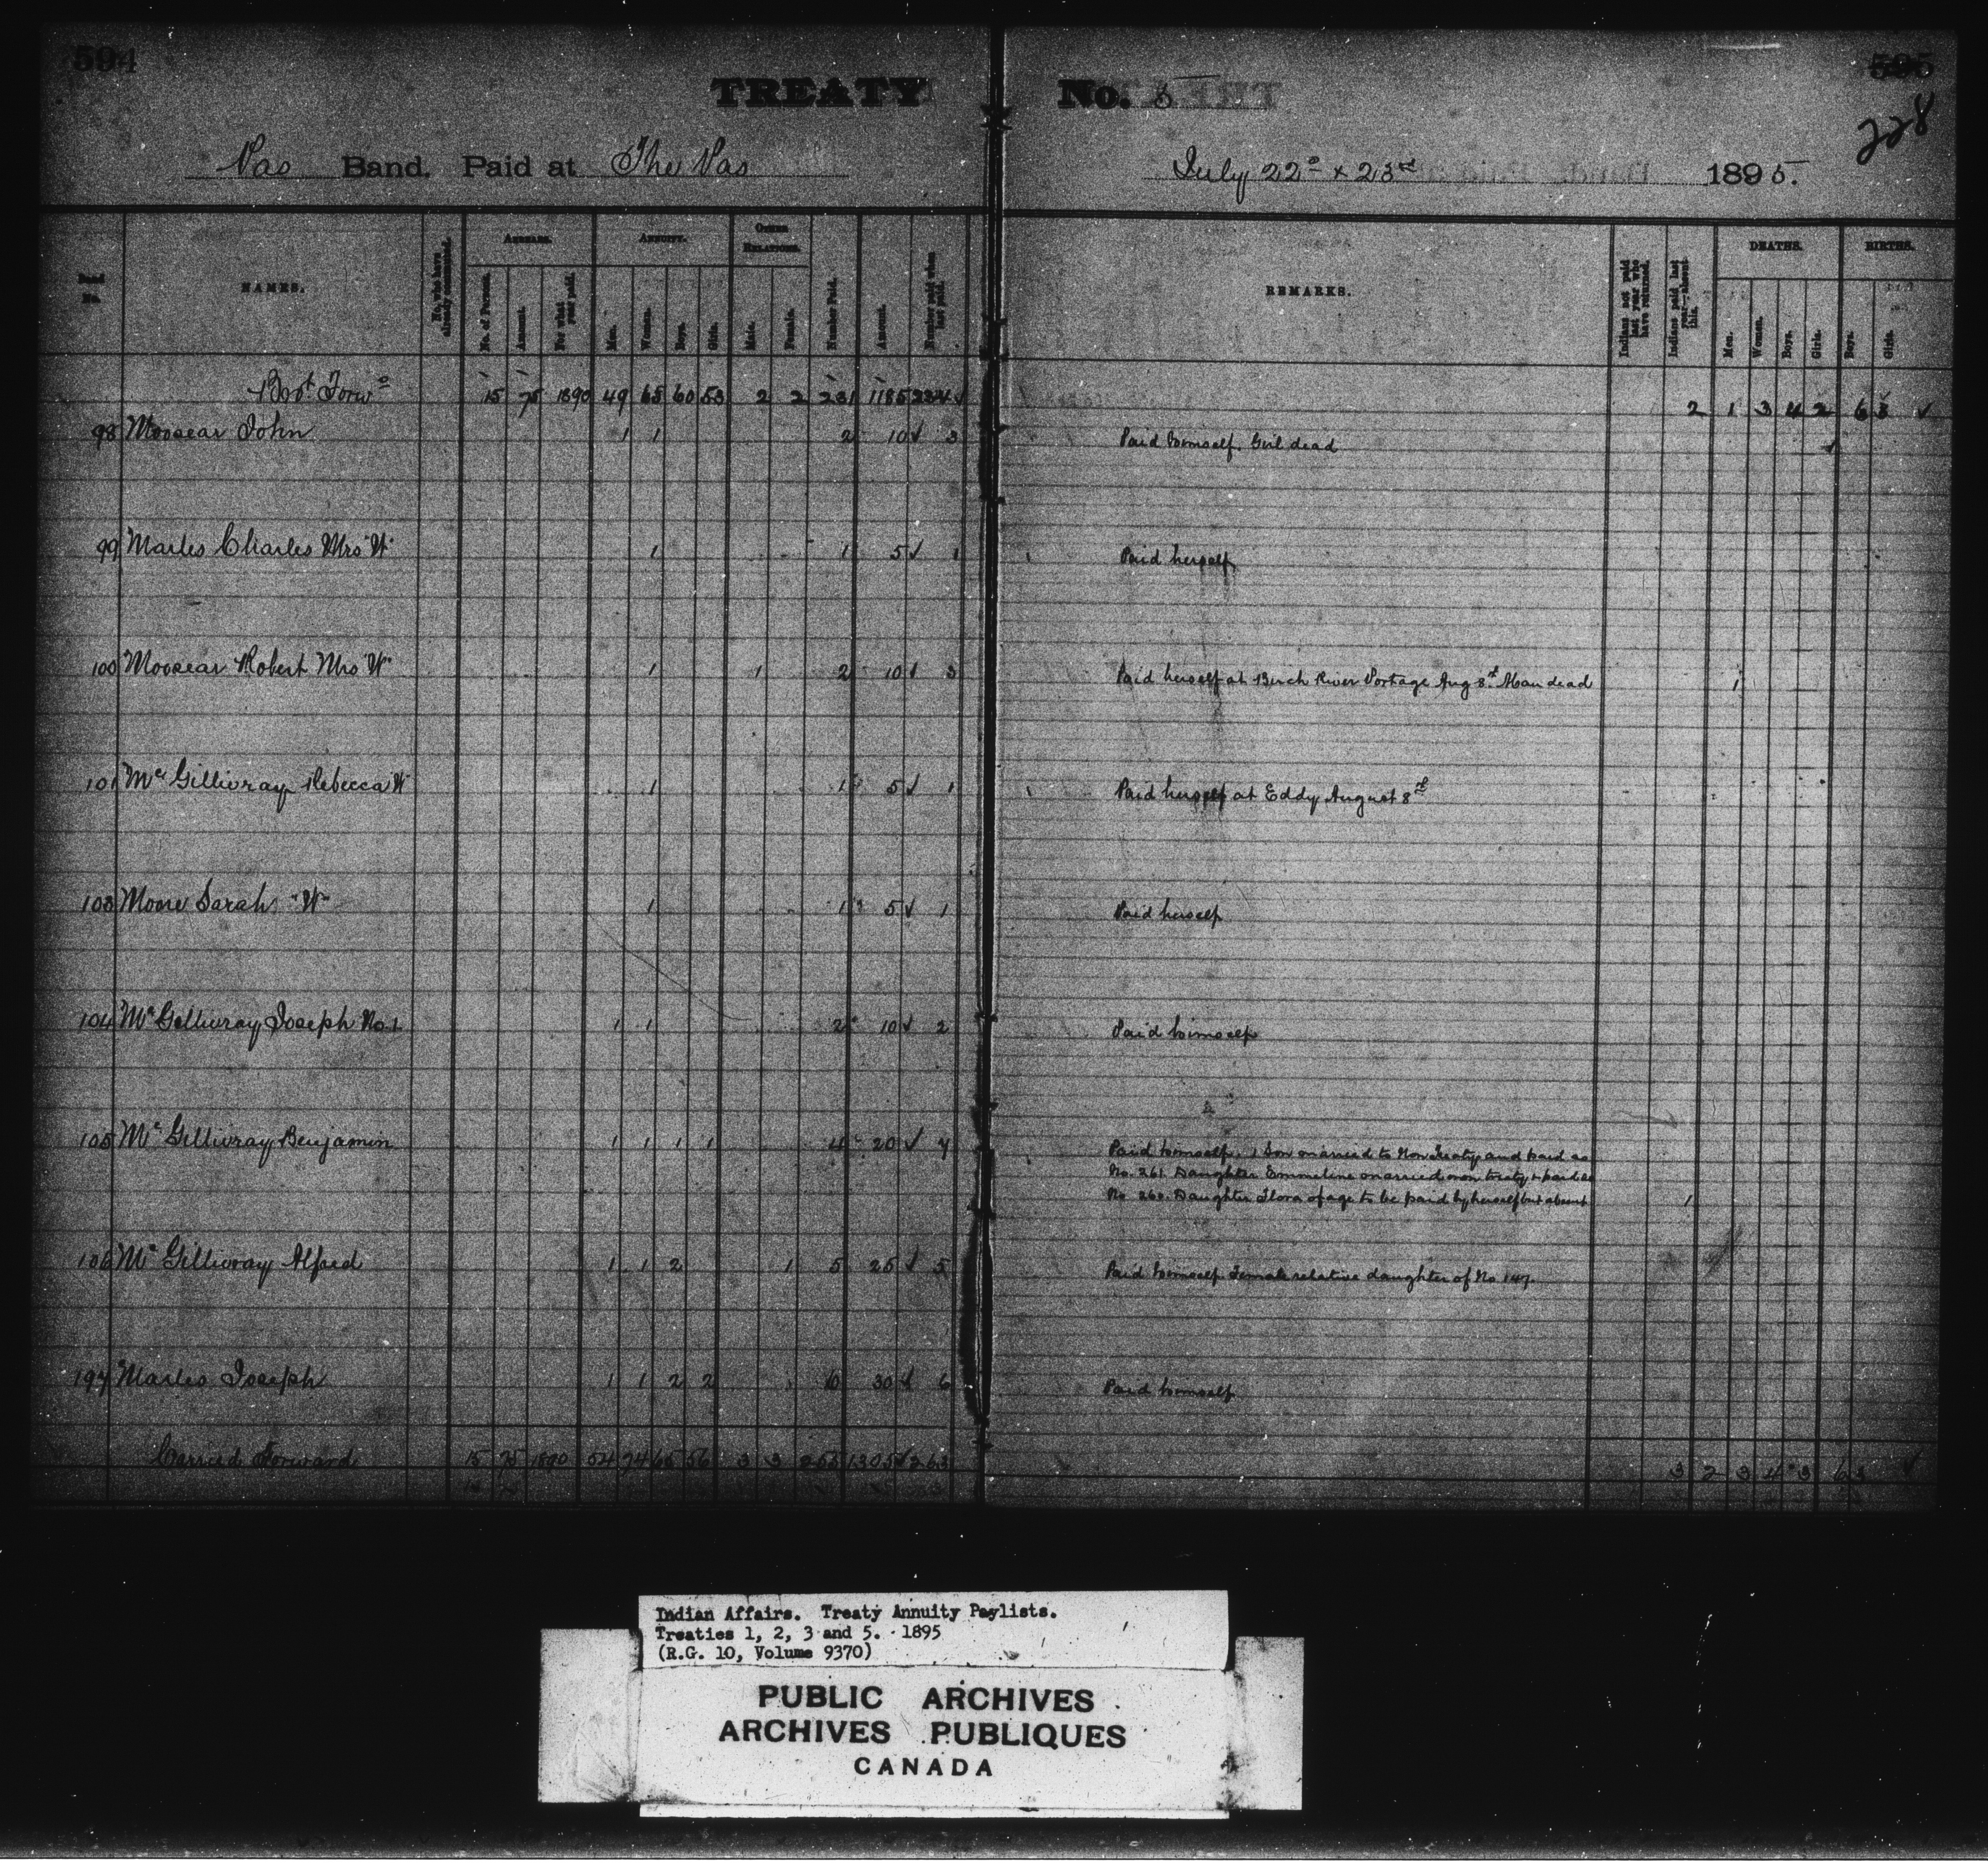 594
595
228
TREATY No. 5
Pas Band. Paid at The Pas July 22ⁿᵈ & 23ʳᵈ 1895.
No. NAMES. No. who have already commuted. ARREARS. ANNUITY. OTHER RELATIONS. Number Paid. Amount. Number paid when last paid. REMARKS. Indians not paid last year who have returned. Indians paid last year—absent this. DEATHS. BIRTHS.
No. of Persons. Amount. For what year paid. Men. Women. Boys. Girls. Male. Female. Men. Women. Boys. Girls. Boys. Girls.
Brot Forwᵈ 15 75 1890 49 65 60 53 2 2 231 1185 234 ✓ 2 1 3 4 2 6 3 ✓
98 Moosear John 1 1 2 10 ✓ 3 Paid himself. Girl dead 1
99 Marles Charles Mrs "W" 1 1 5 ✓ 1 Paid herself
100 Moosear Robert Mrs "W" 1 1 2 10 ✓ 3 Paid herself at Birch River Portage Aug 8ᵗʰ. Man dead 1
101 Mᶜ Gillivray Rebecca W 1 1 5 ✓ 1 Paid herself at Eddy August 8ᵗʰ
103 Moore Sarah "W" 1 1 5 ✓ 1 Paid herself
104 Mᶜ Gillivray Joseph No. 1 1 1 2 10 ✓ 2 Paid himself
105 Mᶜ Gillivray Benjamin 1 1 1 1 4 20 ✓ 7 Paid himself. 1 Son married to Non Treaty and paid as
No. 261. Daughter Emmeline married non treaty & paid as
No 260. Daughter Flora of age to be paid by herself but absent 1
106 Mᶜ Gillivray Alfred 1 1 2 1 5 25 ✓ 5 Paid himself Female relative daughter of No 147.
107 Marles Joseph 1 1 2 2 6 30 ✓ 6 Paid himself
Carried Forward 15 75 1890 54 74 65 56 3 3 255 1305 ✓ 263 3 2 3 4 3 6 3 ✓
Indian Affairs. Treaty Annuity Paylists.
Treaties 1, 2, 3 and 5. 1895
(R.G. 10, Volume 9370)
PUBLIC ARCHIVES
ARCHIVES PUBLIQUES
CANADA